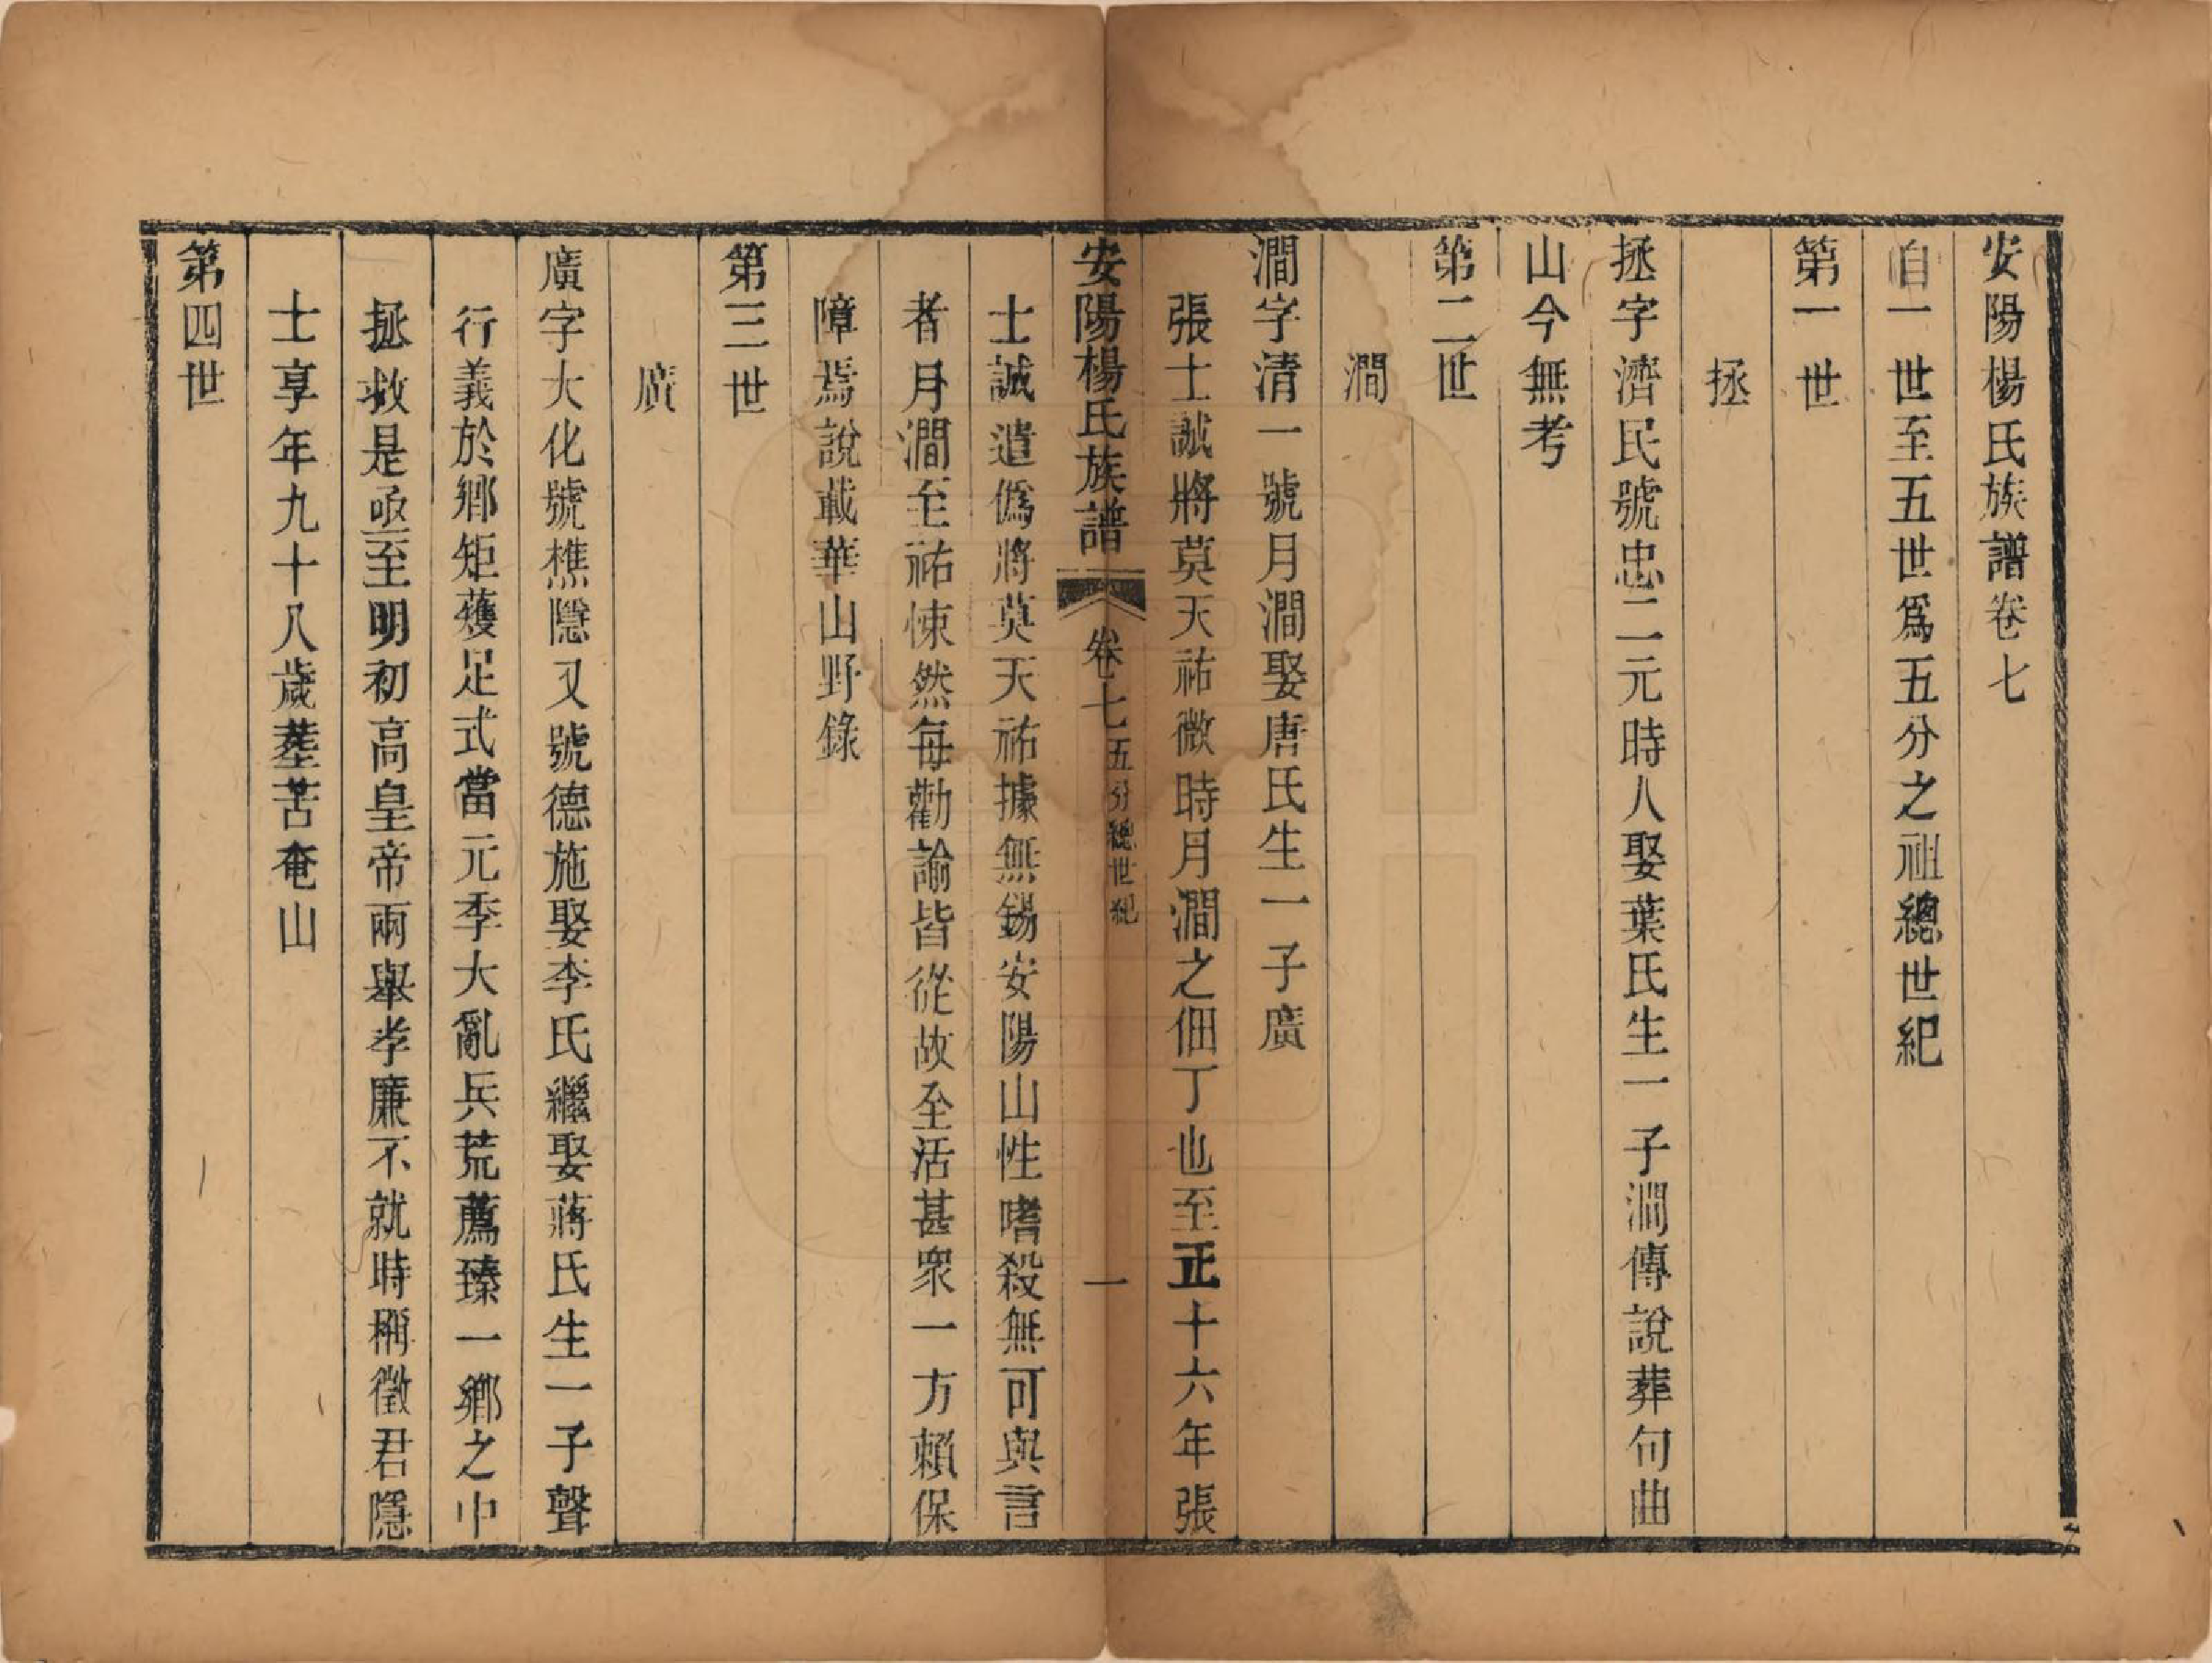 安陽楊氏族譜卷七
自一世至五世爲五分之祖總世紀
第一世
拯
拯字濟民號忠二元時人娶葉氏生一子澗傳說葬句曲
山今無考
第二世
澗
澗字清一號月澗娶唐氏生一子廣
張士誠將莫天祐微時月澗之佃丁也至正十六年張
安陽楊氏族譜 卷七 五分總世紀 一
士誠遣僞將莫天祐據無錫安陽山性嗜殺無可與言
者月澗至祐悚然每勸諭皆從故全活甚衆一方賴保
障焉說載華山野錄
第三世
廣
廣字大化號樵隱又號德施娶李氏繼娶蔣氏生一子聲
行義於鄉矩矱足式當元季大亂兵荒薦臻一鄉之中
拯救是亟至明初高皇帝兩舉孝廉不就時稱徵君隱
士享年九十八歲塟苦奄山
第四世